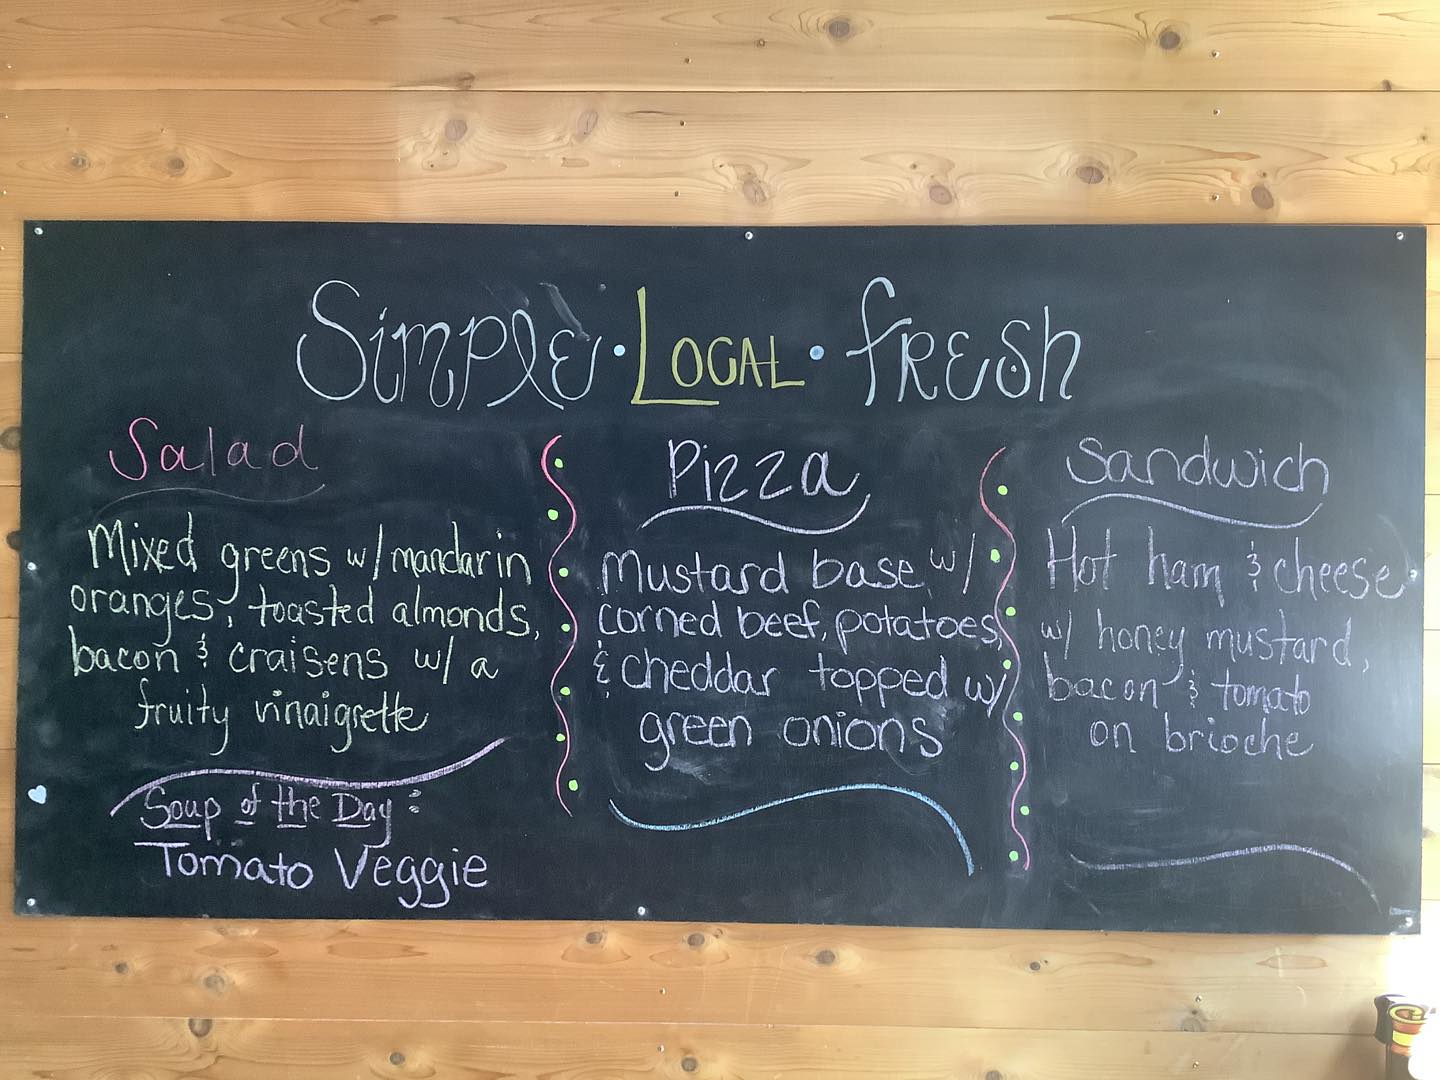 Simple · Local · fresh
Salad
Mixed greens w/ mandarin
oranges, toasted almonds,
bacon & craisens w/ a
fruity vinaigrette
Soup of the Day:
Tomato Veggie
Pizza
Mustard base w/
corned beef, potatoes,
& cheddar topped w/
green onions
Sandwich
Hot ham & cheese
w/ honey mustard,
bacon & tomato
on brioche